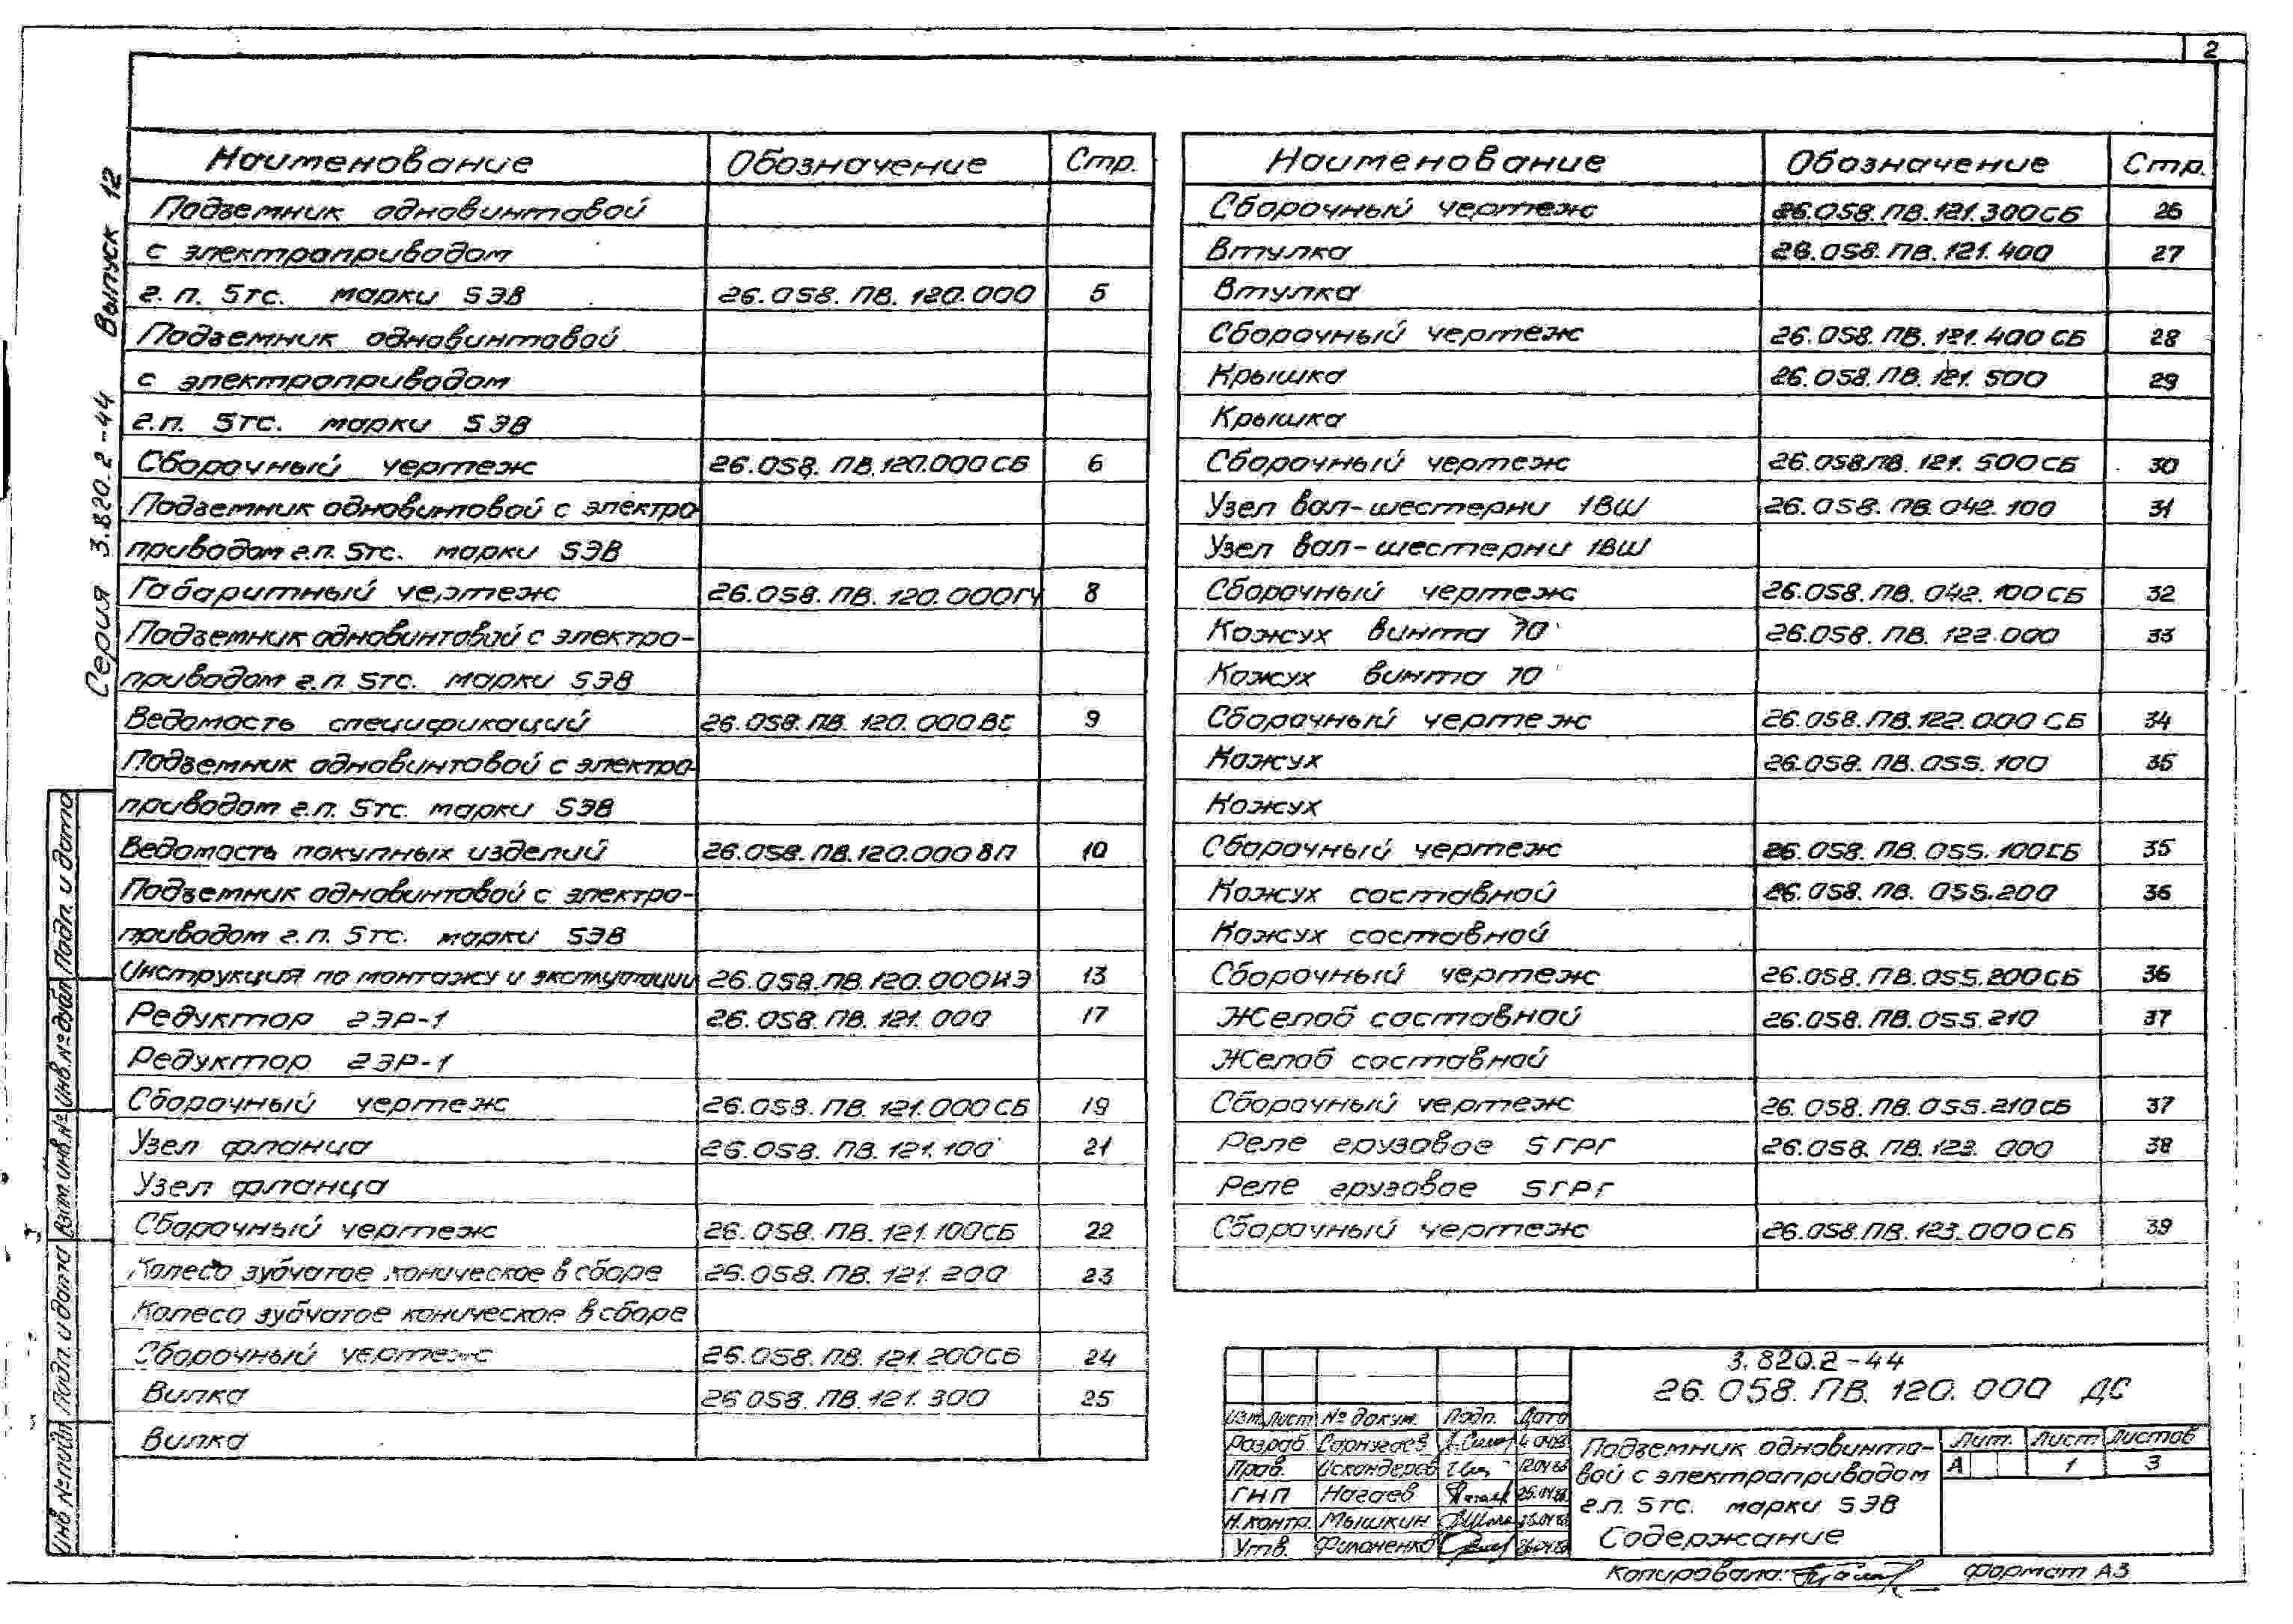 2
Серия 3.820.2-44 Выпуск 12
Наименование Обозначение Стр.
Подъемник одновинтовой
с электроприводом
г. п. 5тс. марки 5ЭВ 26.058.ПВ.120.000 5
Подъемник одновинтовой
с электроприводом
г.п. 5тс. марки 5ЭВ
Сборочный чертеж 26.058.ПВ.120.000СБ 6
Подъемник одновинтовой с электро
приводом г.п. 5тс. марки 5ЭВ
Габаритный чертеж 26.058.ПВ.120.000ГЧ 8
Подъемник одновинтовой с электро-
приводом г.п. 5тс. марки 5ЭВ
Ведомость спецификаций 26.058.ПВ.120.000ВС 9
Подъемник одновинтовой с электро-
приводом г.п. 5тс. марки 5ЭВ
Ведомость покупных изделий 26.058.ПВ.120.000ВП 10
Подъемник одновинтовой с электро-
приводом г.п. 5тс. марки 5ЭВ
Инструкция по монтажу и эксплуатации 26.058.ПВ.120.000ИЭ 13
Редуктор 2ЭР-1 26.058.ПВ.121.000 17
Редуктор 2ЭР-1
Сборочный чертеж 26.058.ПВ.121.000СБ 19
Узел фланца 26.058.ПВ.121.100 21
Узел фланца
Сборочный чертеж 26.058.ПВ.121.100СБ 22
Колесо зубчатое коническое в сборе 26.058.ПВ.121.200 23
Колесо зубчатое коническое в сборе
Сборочный чертеж 26.058.ПВ.121.200СБ 24
Вилка 26.058.ПВ.121.300 25
Вилка
Наименование Обозначение Стр.
Сборочный чертеж 26.058.ПВ.121.300СБ 26
Втулка 26.058.ПВ.121.400 27
Втулка
Сборочный чертеж 26.058.ПВ.121.400СБ 28
Крышка 26.058.ПВ.121.500 29
Крышка
Сборочный чертеж 26.058ПВ.121.500СБ 30
Узел вал-шестерни 1ВШ 26.058.ПВ.042.100 31
Узел вал-шестерни 1ВШ
Сборочный чертеж 26.058.ПВ.042.100СБ 32
Кожух винта 70 26.058.ПВ.122.000 33
Кожух винта 70
Сборочный чертеж 26.058.ПВ.122.000СБ 34
Кожух 26.058.ПВ.055.100 35
Кожух
Сборочный чертеж 26.058.ПВ.055.100СБ 35
Кожух составной 26.058.ПВ.055.200 36
Кожух составной
Сборочный чертеж 26.058.ПВ.055.200СБ 36
Желоб составной 26.058.ПВ.055.210 37
Желоб составной
Сборочный чертеж 26.058.ПВ.055.210СБ 37
Реле грузовое 5ГРГ 26.058.ПВ.123.000 38
Реле грузовое 5ГРГ
Сборочный чертеж 26.058.ПВ.123.000СБ 39
Инв.№подл Подп. и дата Взам.инв.№ Инв.№дубл Подп. и дата
3.820.2-44
26.058.ПВ.120.000 ДС
Изм. Лист № докум. Подп. Дата
Разраб. Сарнугаев
Пров. Искандеров
ГНП Нагаев
Н.контр. Мышкин
Утв. Филоненко
Подъемник одновинто-
вой с электроприводом
г.п. 5тс. марки 5ЭВ
Содержание
Лит. Лист Листов
А 1 3
Копировала: Формат А3